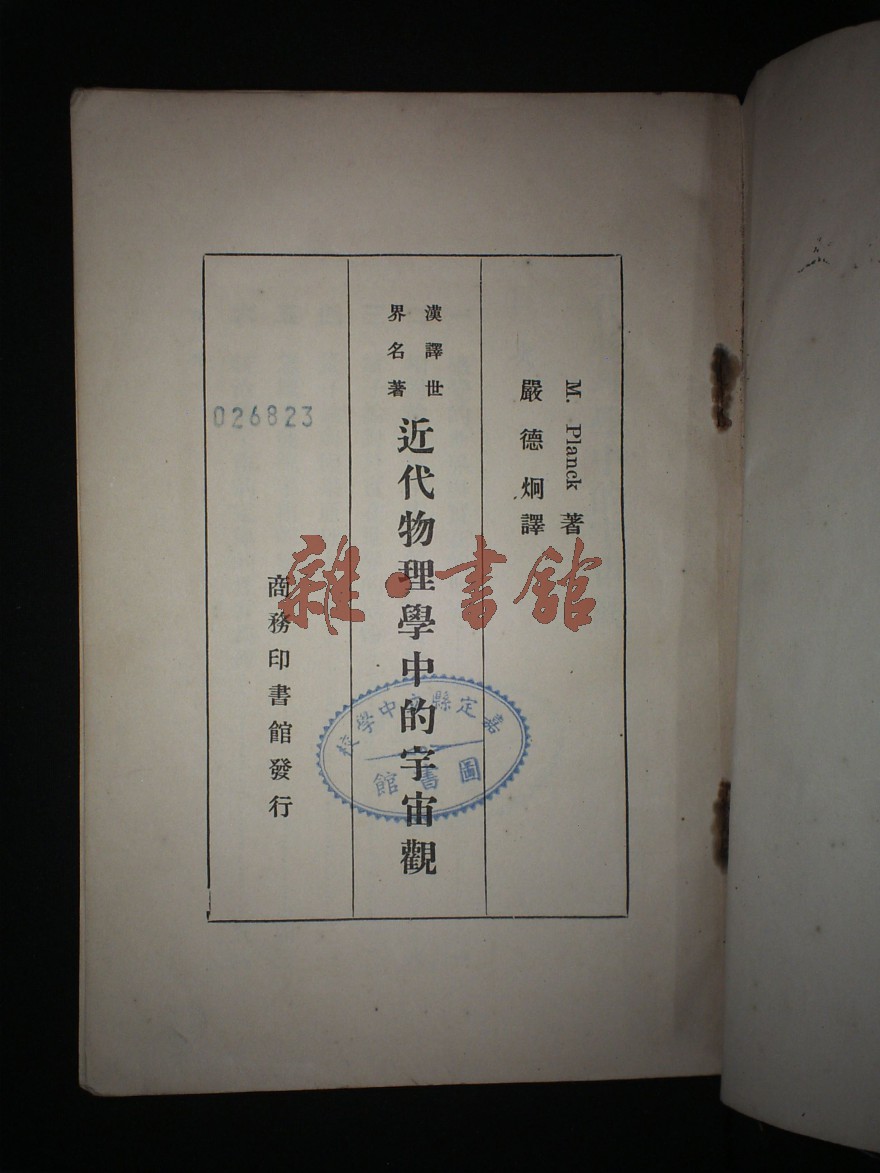 M. Planck 著
嚴德炯譯
漢譯世
界名著
近代物理學中的宇宙觀
商務印書館發行
026823
嘉定縣立中學校
圖書館
雜·書館